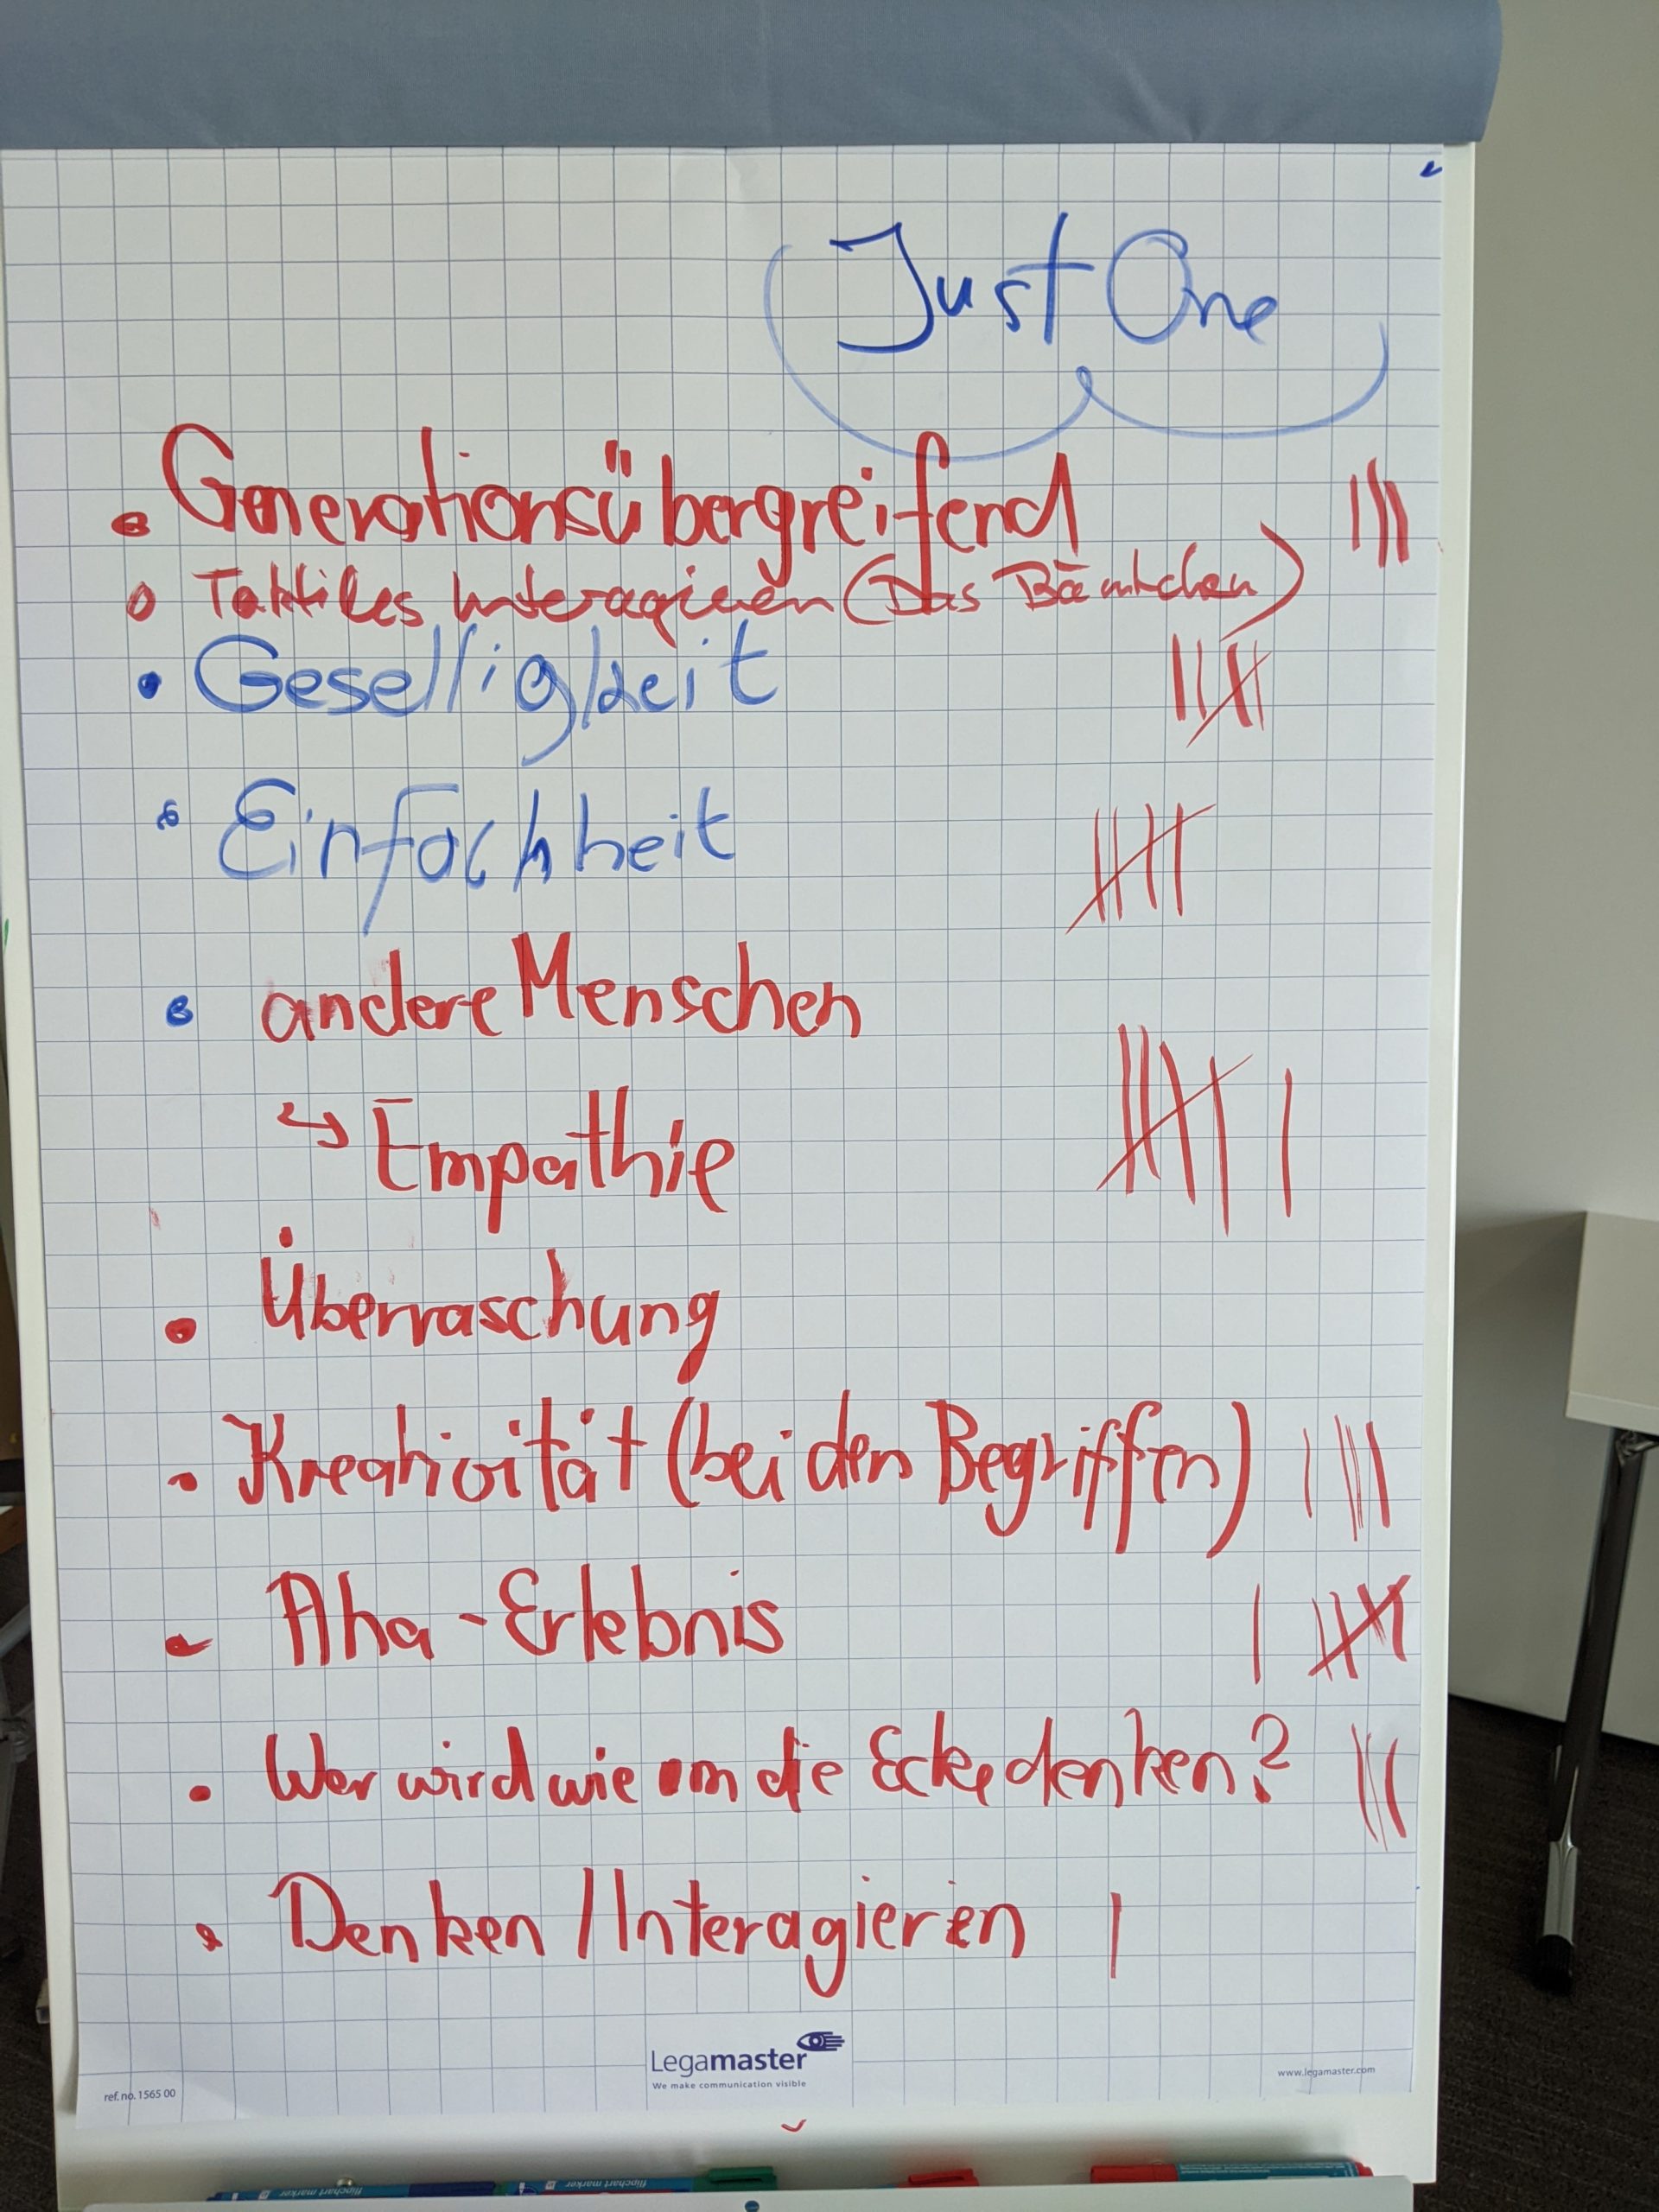 Just One
• Generationsübergreifend |||
• Taktiles Interagieren (Das Bäumchen)
• Geselligkeit
• Einfachheit
• andere Menschen
↳ Empathie
• Überraschung
• Kreativität (bei den Begriffen)
• Aha-Erlebnis
• Wer wird wie um die Ecke denken? |||
• Denken / Interagieren |
Legamaster
We make communication visible
ref.no. 1565 00
www.legamaster.com
flipchart marker
flipchart marker